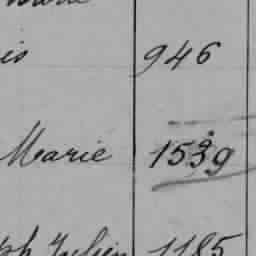 is 946
Marie 1539
ph Julien 1185